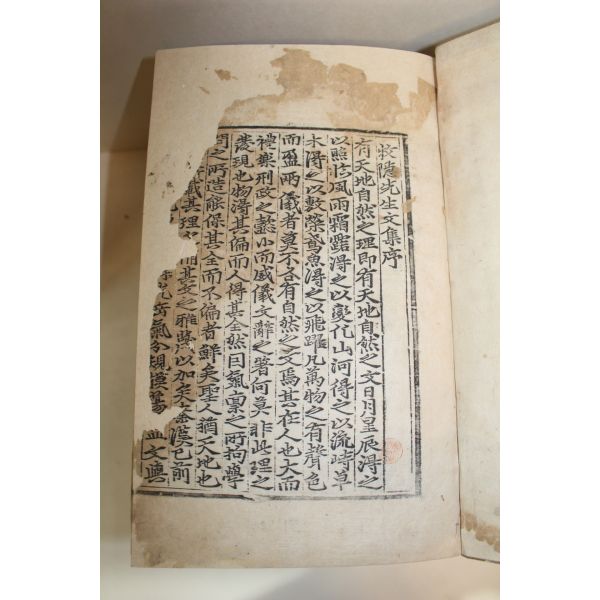 牧隱先生文集序
有天地自然之理即有天地自然之文日月星辰得之
以照臨風雨霜露得之以變化山河得之以流峙草
木得之以敷榮鳶魚得之以飛躍凡萬物之有聲色
而盈兩儀者莫不各有自然之文焉其在人也大而
禮樂刑政之懿小而威儀文辭之著何莫非此理之
發現也物得其偏而人得其全然因氣稟之所拘學
問之所造能保其全而不偏者鮮矣聖人猶天地也
載其理 其文之雅 以加矣 漢已前
光岳氣分規模
文與